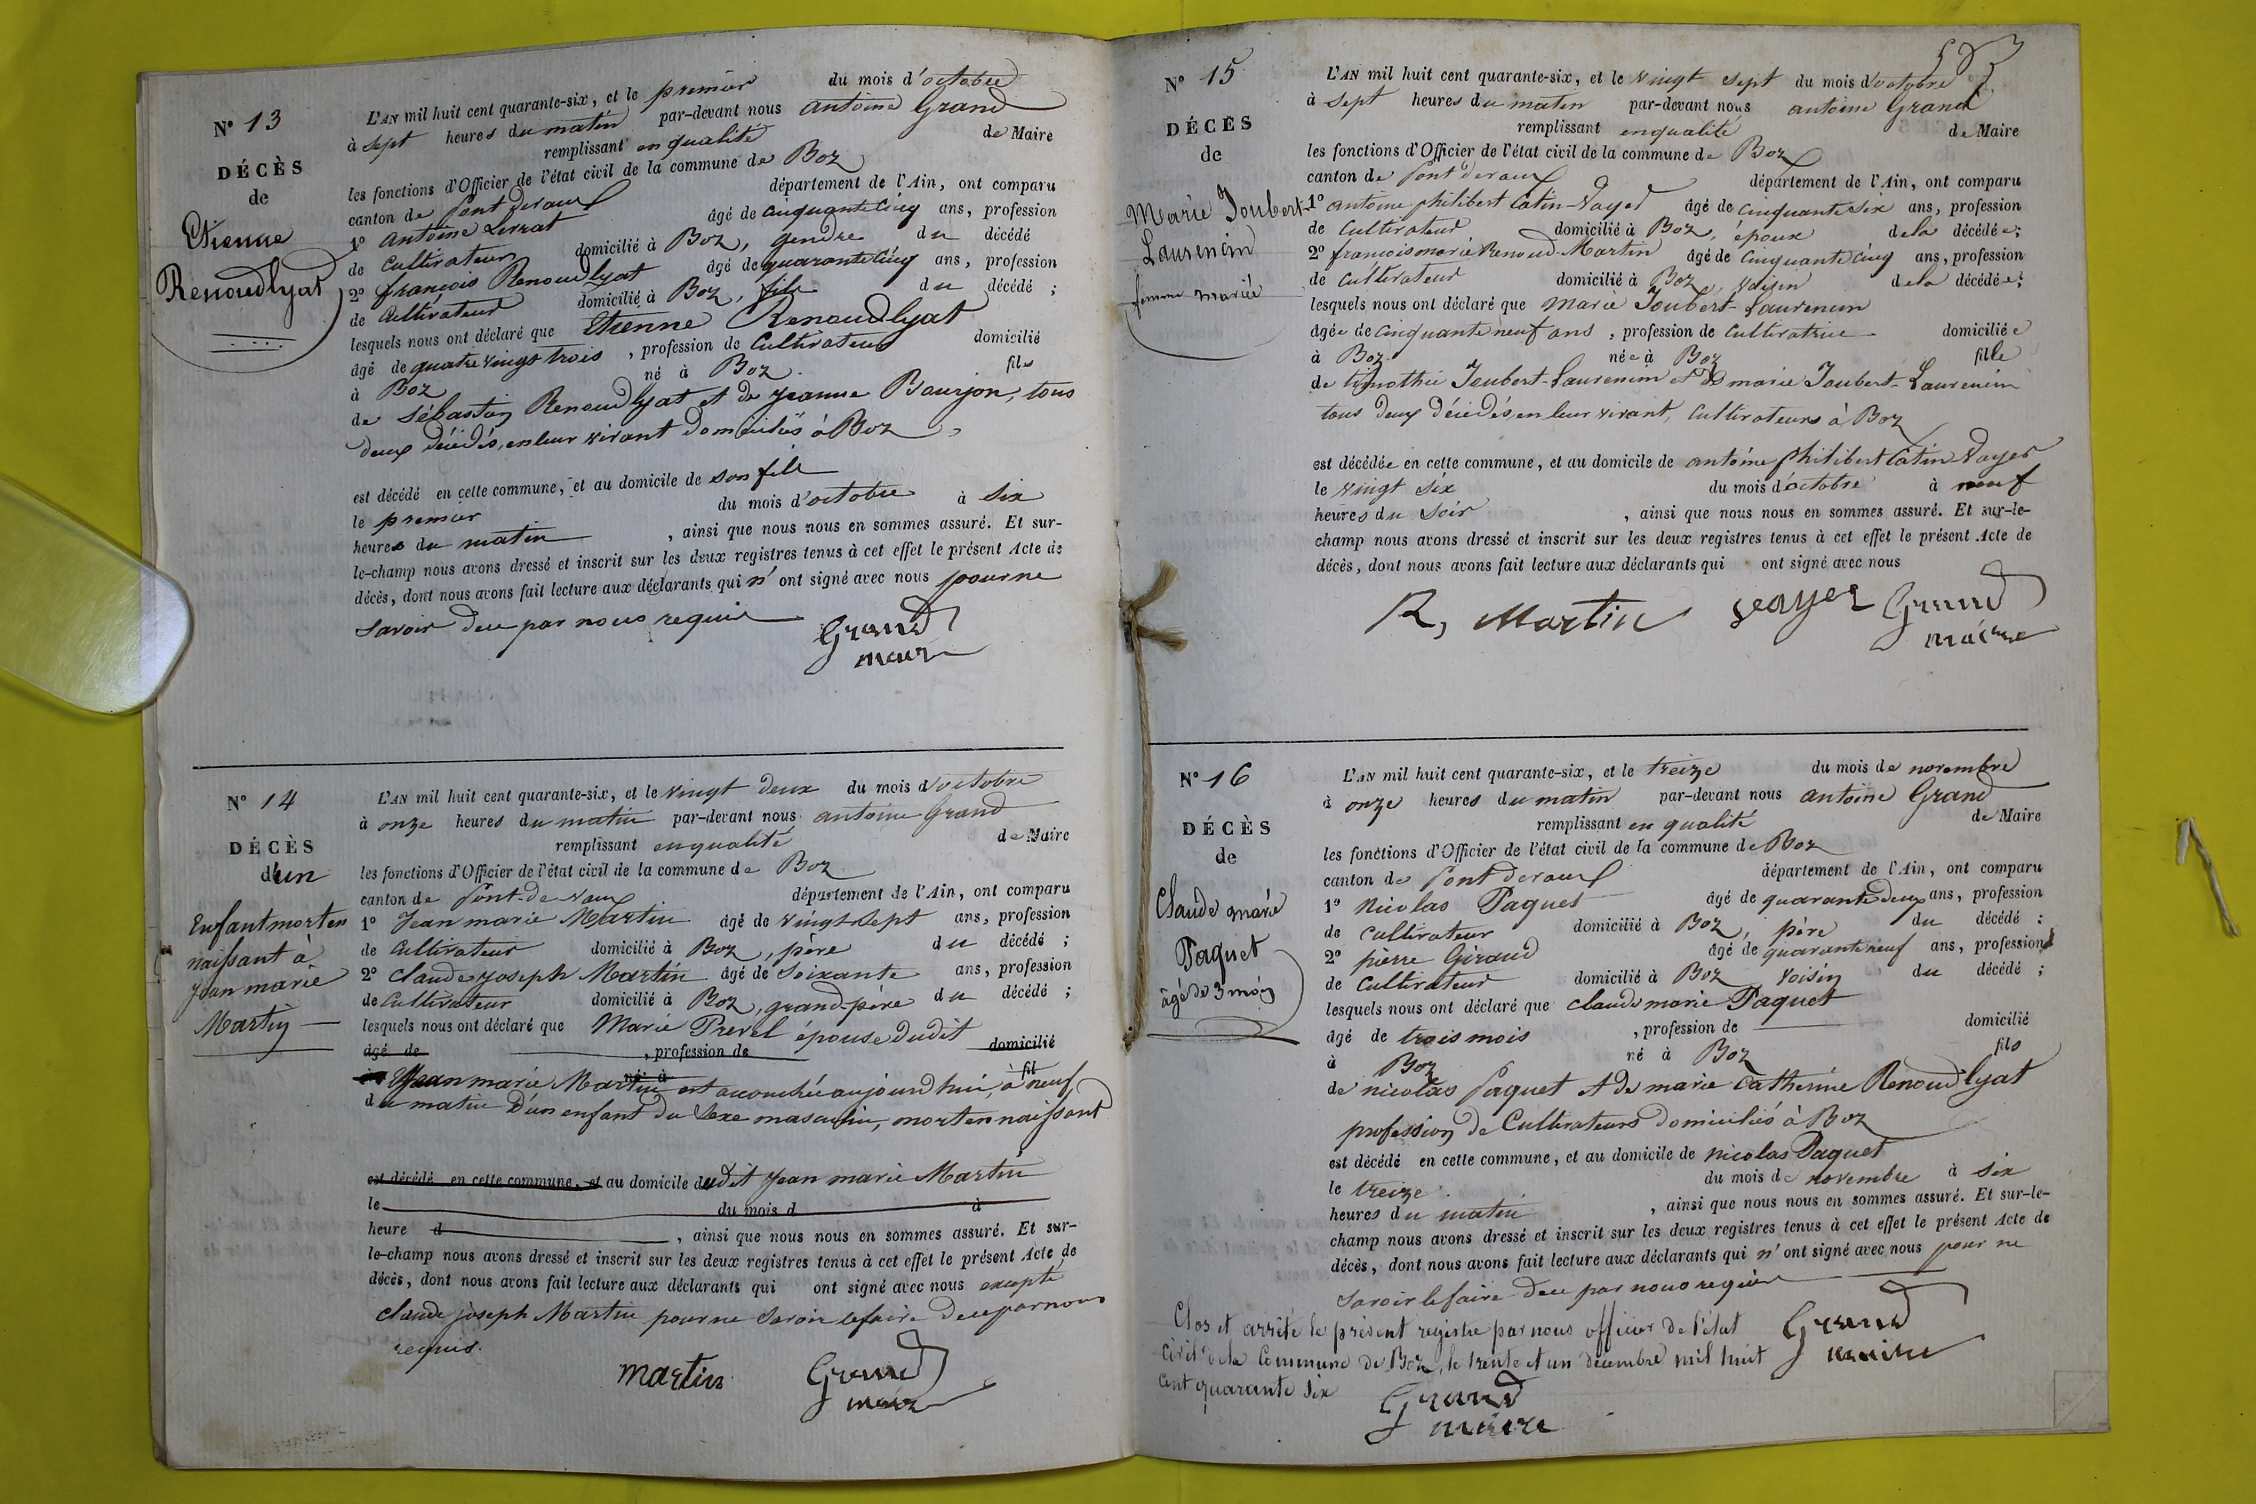 N° 13
DÉCÈS
de
Etienne
Renoud lyat
L'AN mil huit cent quarante-six, et le premier du mois d'octobre
à sept heures du matin par-devant nous antoine Grand
remplissant en qualité de Maire
les fonctions d'Officier de l'état civil de la commune de Boz
canton de pont devaux département de l'Ain, ont comparu
1° Antoine âgé de cinquante cinq ans, profession
de cultivateur domicilié à Boz, gendre du décédé
2° françois Renoud lyat âgé de quarante cinq ans, profession
de cultivateur domicilié à Boz, fils du décédé ;
lesquels nous ont déclaré que Etienne Renoud lyat
âgé de quatre vingt trois, profession de Cultivateur domicilié
à Boz né à Boz fils
de sébastien Renoud lyat et de jeanne Bourjon, tous
deux décédés, en leur vivant domiciliés à Boz
est décédé en cette commune, et au domicile de son fils
le premier du mois d'octobre à six
heures du matin, ainsi que nous nous en sommes assuré. Et sur-
le-champ nous avons dressé et inscrit sur les deux registres tenus à cet effet le présent Acte de
décès, dont nous avons fait lecture aux déclarants qui n'ont signé avec nous pour ne
savoir deu par nous requis
Grand
maire
N° 14
DÉCÈS
d'un
Enfant mort en
naissant à
jean marie
Martin
L'AN mil huit cent quarante-six, et le vingt deux du mois d'octobre
à onze heures du matin par-devant nous antoine Grand
remplissant en qualité de Maire
les fonctions d'Officier de l'état civil de la commune de Boz
canton de Pont-de-vaux département de l'Ain, ont comparu
1° Jean marie Martin âgé de vingt-sept ans, profession
de cultivateur domicilié à Boz, père du décédé ;
2° claude joseph Martin âgé de soixante ans, profession
de Cultivateur domicilié à Boz, grand-père du décédé ;
lesquels nous ont déclaré que Marie Prevel épouse dudit
âgé de , profession de domicilié
né à fil
Jean marie Martin est accouchée aujourd'hui, à neuf
du matin d'un enfant du sexe masculin, mort en naissant
est décédé en cette commune, et au domicile dudit jean marie Martin
le du mois d à
heure d , ainsi que nous nous en sommes assuré. Et sur-
le-champ nous avons dressé et inscrit sur les deux registres tenus à cet effet le présent Acte de
décès, dont nous avons fait lecture aux déclarants qui ont signé avec nous excepté
claude joseph Martin pour ne savoir le faire deu par nous
requis.
martin Grand
maire
N° 15
DÉCÈS
de
Marie Joubert-
Laurencin
femme mariée
L'AN mil huit cent quarante-six, et le vingt sept du mois d'octobre
à sept heures du matin par-devant nous antoine Grand
remplissant en qualité de Maire
les fonctions d'Officier de l'état civil de la commune de Boz
canton de pont devaux département de l'Ain, ont comparu
1° antoine philibert Catin-Vayer âgé de cinquante six ans, profession
de cultivateur domicilié à Boz, époux de la décédée ;
2° françois marie Renoud-Martin âgé de cinquante cinq ans, profession
de cultivateur domicilié à Boz, voisin de la décédée ;
lesquels nous ont déclaré que marie Joubert-Laurencin
âgée de cinquante neuf ans, profession de cultivatrice domiciliée
à Boz née à Boz fille
de timothée Joubert-Laurencin et de marie Joubert-Laurencin
tous deux décédés, en leur vivant, cultivateurs à Boz
est décédée en cette commune, et au domicile de antoine philibert Catin Vayer
le vingt six du mois d'octobre à neuf
heures du soir, ainsi que nous nous en sommes assuré. Et sur-le-
champ nous avons dressé et inscrit sur les deux registres tenus à cet effet le présent Acte de
décès, dont nous avons fait lecture aux déclarants qui ont signé avec nous
R, Martin vayer Grand
maire
N° 16
DÉCÈS
de
Claude marie
Paquet
âgé de 3 mois
L'AN mil huit cent quarante-six, et le treize du mois de novembre
à onze heures du matin par-devant nous antoine Grand
remplissant en qualité de Maire
les fonctions d'Officier de l'état civil de la commune de Boz
canton de pont devaux département de l'Ain, ont comparu
1° Nicolas Paquet âgé de quarante deux ans, profession
de cultivateur domicilié à Boz, père du décédé ;
2° pierre Giraud âgé de quarante neuf ans, profession
de cultivateur domicilié à Boz voisin du décédé ;
lesquels nous ont déclaré que claude marie Paquet
âgé de trois mois, profession de domicilié
à Boz né à Boz fils
de nicolas paquet et de marie catherine Renoud lyat
profession de Cultivateurs domiciliés à Boz
est décédé en cette commune, et au domicile de nicolas Paquet
le treize du mois de novembre à six
heures du matin, ainsi que nous nous en sommes assuré. Et sur-le-
champ nous avons dressé et inscrit sur les deux registres tenus à cet effet le présent Acte de
décès, dont nous avons fait lecture aux déclarants qui n'ont signé avec nous pour ne
savoir le faire deu par nous requis
Grand
maire
Clos et arrêté le présent registre par nous officier de l'état
civil de la Commune de Boz, le trente et un décembre mil huit
cent quarante six
Grand
maire